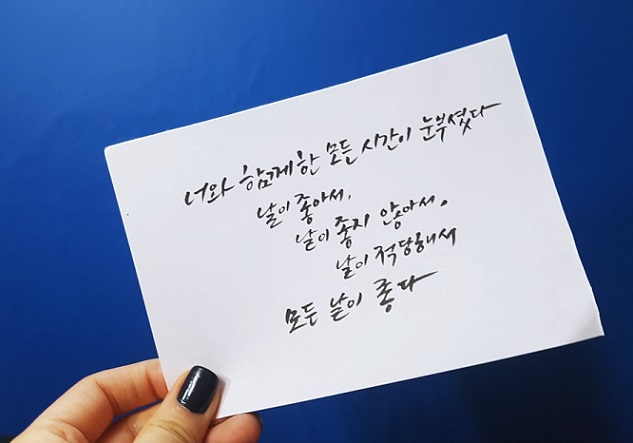 너와 함께한 모든 시간이 눈부셨다
날이 좋아서,
날이 좋지 않아서,
날이 적당해서
모든 날이 좋다